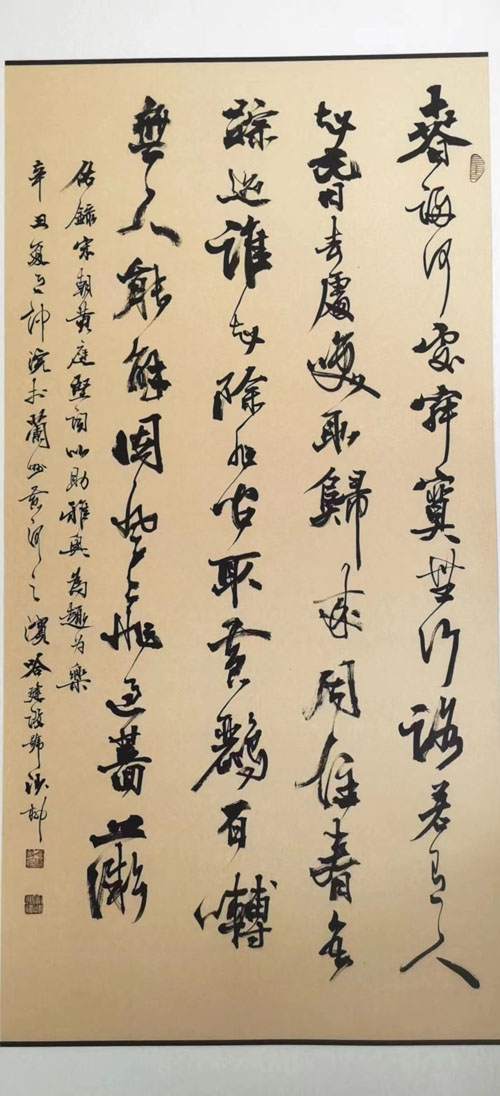 春歸何處寂寞無行路若有人
知春去處喚取歸來同住春無
踪迹誰知除非問取黄鸝百囀
無人能解因風飛過薔薇
錄宋朝黄庭堅詞以助雅興為趣為樂
辛丑夏之浣於蘭州黄河之濱建